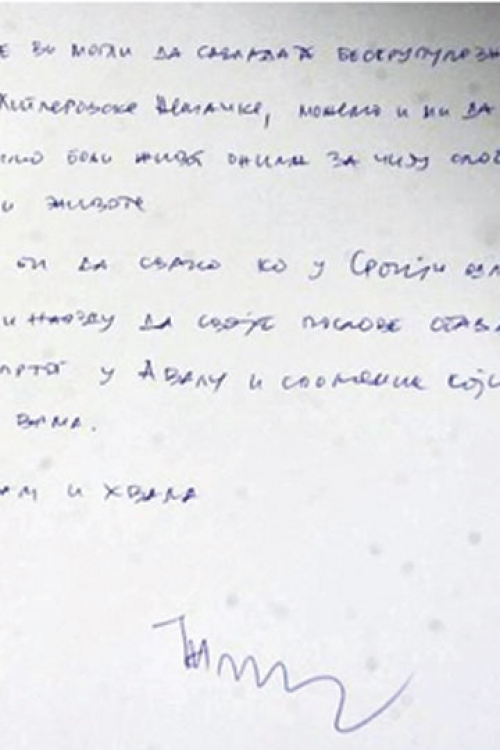 е ви могли да савладате бескрупулозн
Хитлеровске Немачке, можемо и ми да
имо бољи живот онима за чију слоб
и животе
би да свако ко у Србији
и награду да своје послове
у Авалу и споменик који
вама.
ам и хвала